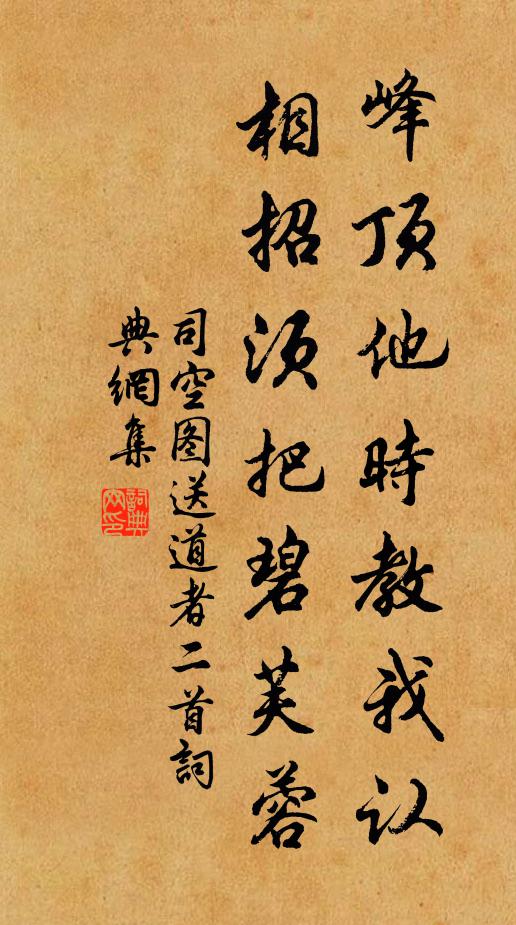 峰顶他時教我认
相招须把碧芙蓉
司空图送道者二首詞
典網集
詞典
网印